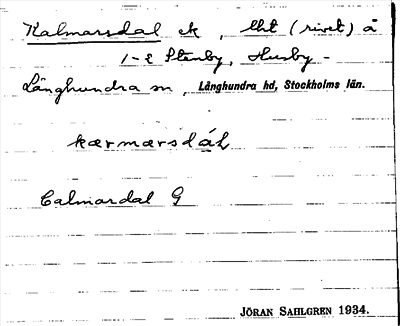 Kalmarsdal ek, lht (rivet) å
1-2 Stenby, Husby-
Långhundra sn, Långhundra hd, Stockholms län.
kærmærsdáL
Calmardal G
JÖRAN SAHLGREN 1934.